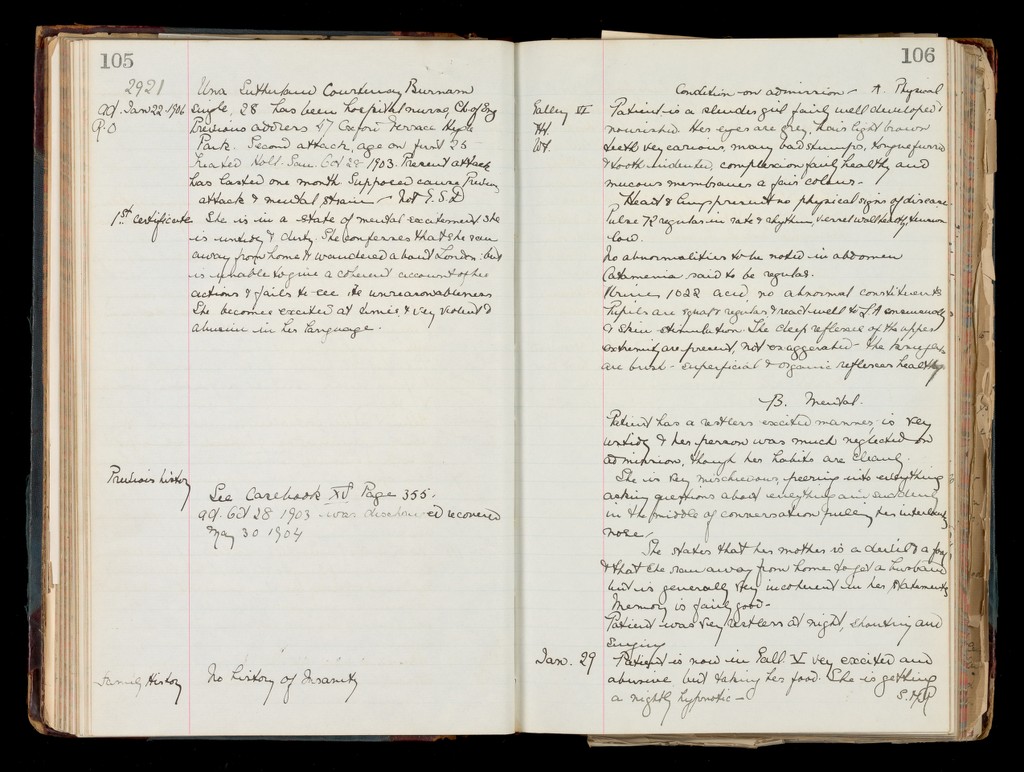 105
2921
Una Sutherland Courtenay Burnam
ad. Jan 22 1906 Single, 28 has been hospital nurse, Ch of Eng
P.O Previous address 47 Oxford Terrace Hyde
Park. Second attack, age on first 25
treated Holl. San. Oct 28 1903. Present attack
has lasted one month Supposed cause Previous
attack & mental strain - Not E.S.D
1st certificate She is in a state of mental excitement She
is untidy & dirty. She confesses that she ran
away from home & wandered about London: but
is unable to give a coherent account of her
actions & fails to see the unreasonableness
She becomes excited at times & very violent &
abusive in her language.
Previous history
See Casebook XV Page 355.
ad. Oct 28 1903 was discharged recovered
May 30 1904
Family History No history of Insanity
106
Condition on admission - A. Physical
Galley VI Patient is a slender girl fairly well developed &
Ht. nourished. Her eyes are grey, hair light brown
Wt. teeth very carious, many bad stumps, tongue furred
& tooth indented, complexion fairly healthy and
mucous membranes a fair colour.
Heart & lungs present no physical signs of disease.
Pulse 72 regular in rate & rhythm, vessel wall healthy, tension
low.
No abnormalities to be noted in abdomen
Catamenia said to be regular.
Urine 1022 acid no abnormal constituents
Pupils are equal & regular & react well to L A consensually
& skin stimulation. The deep reflexes of the upper
extremity are present, not exaggerated - the knee jerks
are brisk - superficial & organic reflexes healthy
B. Mental.
Patient has a restless excited manner, is very
untidy & her person was much neglected on
admission, though her habits are cleanly.
She is very mischievous, peering into everything
asking questions about everything and suddenly
in the middle of conversation pulling her interlocutor's
nose.
She states that her mother is a devil & a fox
& that she ran away from home to get a husband
but is generally very incoherent in her statements
Memory is fairly good -
Patient was very restless at night, shouting and
singing
Jan. 29 Patient is now in Gall. V very excited and
abusive but taking her food. She is getting
a nightly hypnotic -